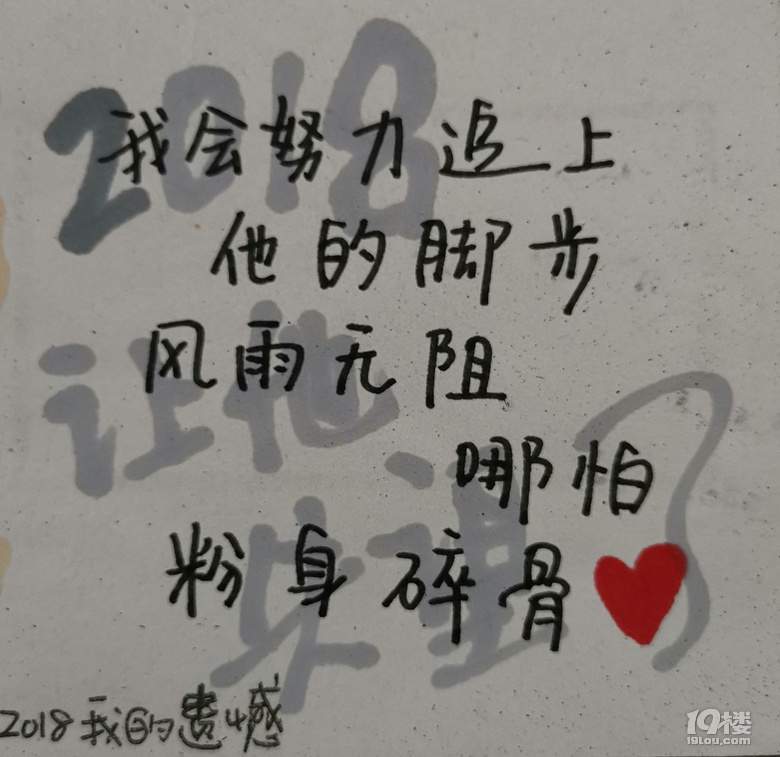 2018
我会努力追上
他的脚步
风雨无阻
哪怕
粉身碎骨
让他
失望了
2018我的遗憾
19楼
19lou.com